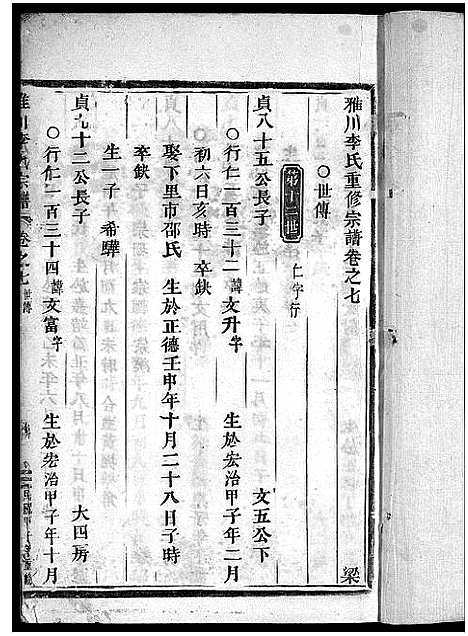 雅川李氏重修宗譜卷之七 梁
○世傳
第十二世 仁字行
貞八十五公長子 文五公下
○行仁一百三十二諱文升字 生於宏治甲子年二月
初六日亥時 卒缺
娶下里市邵氏 生於正德壬申年十月二十八日子時
卒缺
生一子 希驊
貞九十二公長子 大四房
○行仁一百三十四諱文富字 生於宏治甲子年十月
雅川李氏宗譜 卷之七 世傳